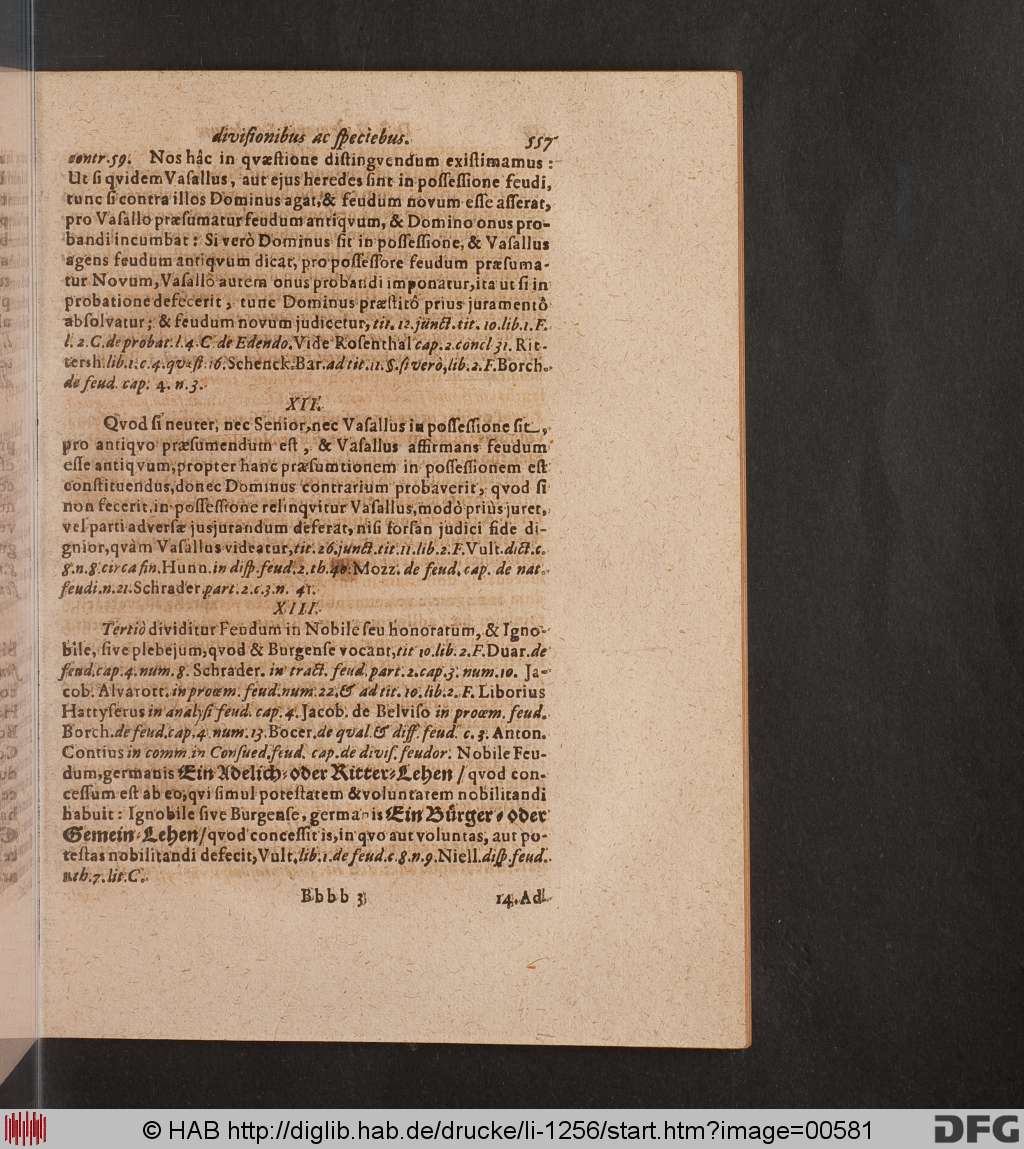 divisionibus ac speciebus. 557
contr. 59. Nos hâc in qvæstione distingvendum existimamus :
Ut si qvidem Vasallus, aut ejus heredes sint in possessione feudi,
tunc si contra illos Dominus agat, & feudum novum esse asserat,
pro Vasallo præsumatur feudum antiqvum, & Domino onus pro-
bandi incumbat : Si verò Dominus sit in possessione, & Vasallus
agens feudum antiqvum dicat, pro possessore feudum præsuma-
tur Novum, Vasallô autem onus probandi imponatur, ita ut si in
probatione defecerit, tunc Dominus præstitô prius juramentô
absolvatur; & feudum novum judicetur, tit. 12. junct. tit. 10. lib. 1. F.
l. 2. C. de probat. l. 4. C. de Edendo. Vide Rosenthal cap. 2. concl 31. Rit-
tersh. lib. 1. c. 4. quæst. 16. Schenck. Bar. ad tit. 11. §. si verò, lib. 2. F. Borch.
de feud. cap. 4. n. 3.
XII.
Qvod si neuter, nec Senior, nec Vasallus in possessione sit,
pro antiqvo præsumendum est, & Vasallus affirmans feudum
esse antiqvum, propter hanc præsumtionem in possessionem est
constituendus, donec Dominus contrarium probaverit, qvod si
non fecerit, in possessione relinqvitur Vasallus, modò priùs juret,
vel parti adversæ jusjurandum deferat, nisi forsan judici fide di-
gnior, qvàm Vasallus videatur, tit. 26. junct. tit. 11. lib. 2. F. Vult. dict. c.
8. n. 8. circa fin. Hunn. in disp. feud. 2. th. 40. Mozz. de feud. cap. de nat.
feudi. n. 21. Schrader. part. 2. c. 3. n. 41.
XIII.
Tertiò dividitur Feudum in Nobile seu honoratum, & Igno-
bile, sive plebejum, qvod & Burgense vocant, tit 10. lib. 2. F. Duar. de
feud. cap. 4. num. 8. Schrader. in tract. feud. part. 2. cap. 3. num. 10. Ja-
cob. Alvarott. in proœm. feud. num. 22. & ad tit. 10. lib. 2. F. Liborius
Hattyserus in analysi feud. cap. 4. Jacob. de Belviso in proœm. feud.
Borch. de feud. cap. 4. num. 13. Bocer. de qval. & diff. feud. c. 3. Anton.
Contius in comm. in Consued. feud. cap. de divis. feudor. Nobile Feu-
dum, germanis Ein Adelich- oder Ritter-Lehen / qvod con-
cessum est ab eo, qvi simul potestatem & voluntatem nobilitandi
habuit : Ignobile sive Burgense, germanis Ein Bürger- oder
Gemein-Lehen / qvod concessit is, in qvo aut voluntas, aut po-
testas nobilitandi defecit, Vult. lib. 1. de feud. c. 8. n. 9. Niell. disp. feud.
th. 7. lit. C.
Bbbb 3 14. Ad
© HAB http://diglib.hab.de/drucke/li-1256/start.htm?image=00581
DFG